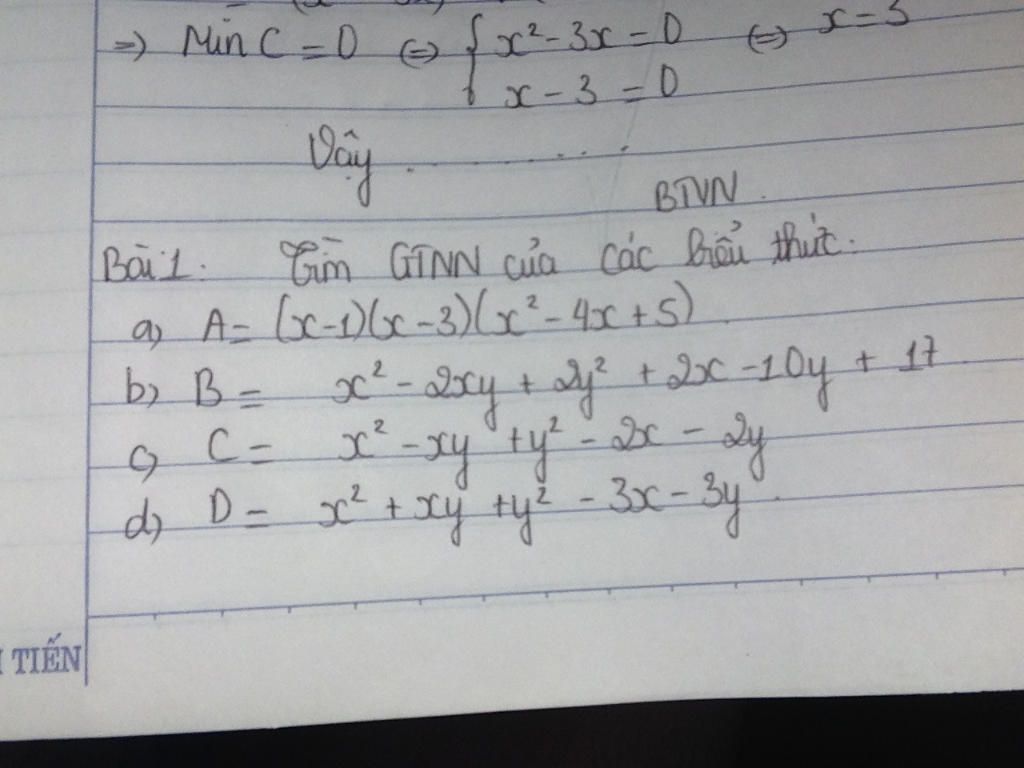 => Min C = 0 <=> { x² - 3x = 0 <=> x = 3
x - 3 = 0
Vậy . . . . . . .
BTVN.
Bài 1. Tìm GTNN của các biểu thức.
a) A = (x-1)(x-3)(x² - 4x + 5)
b) B = x² - 2xy + 2y² + 2x - 10y + 17
c) C = x² - xy + y² - 2x - 2y
d) D = x² + xy + y² - 3x - 3y.
TIẾN